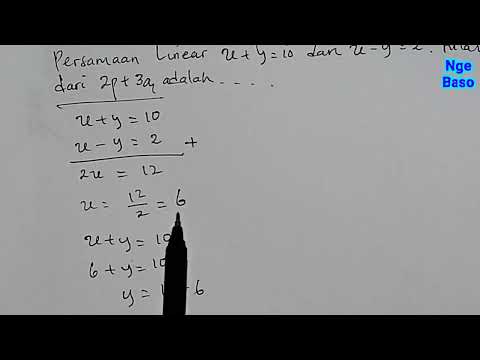 Persamaan Linear x + y = 10 dan x - y = 2.
dari 2p + 3q adalah ....
x + y = 10
x - y = 2 +
2x = 12
x = 12/2 = 6
x + y = 10
6 + y = 10
y = 1 6
Nge
Baso